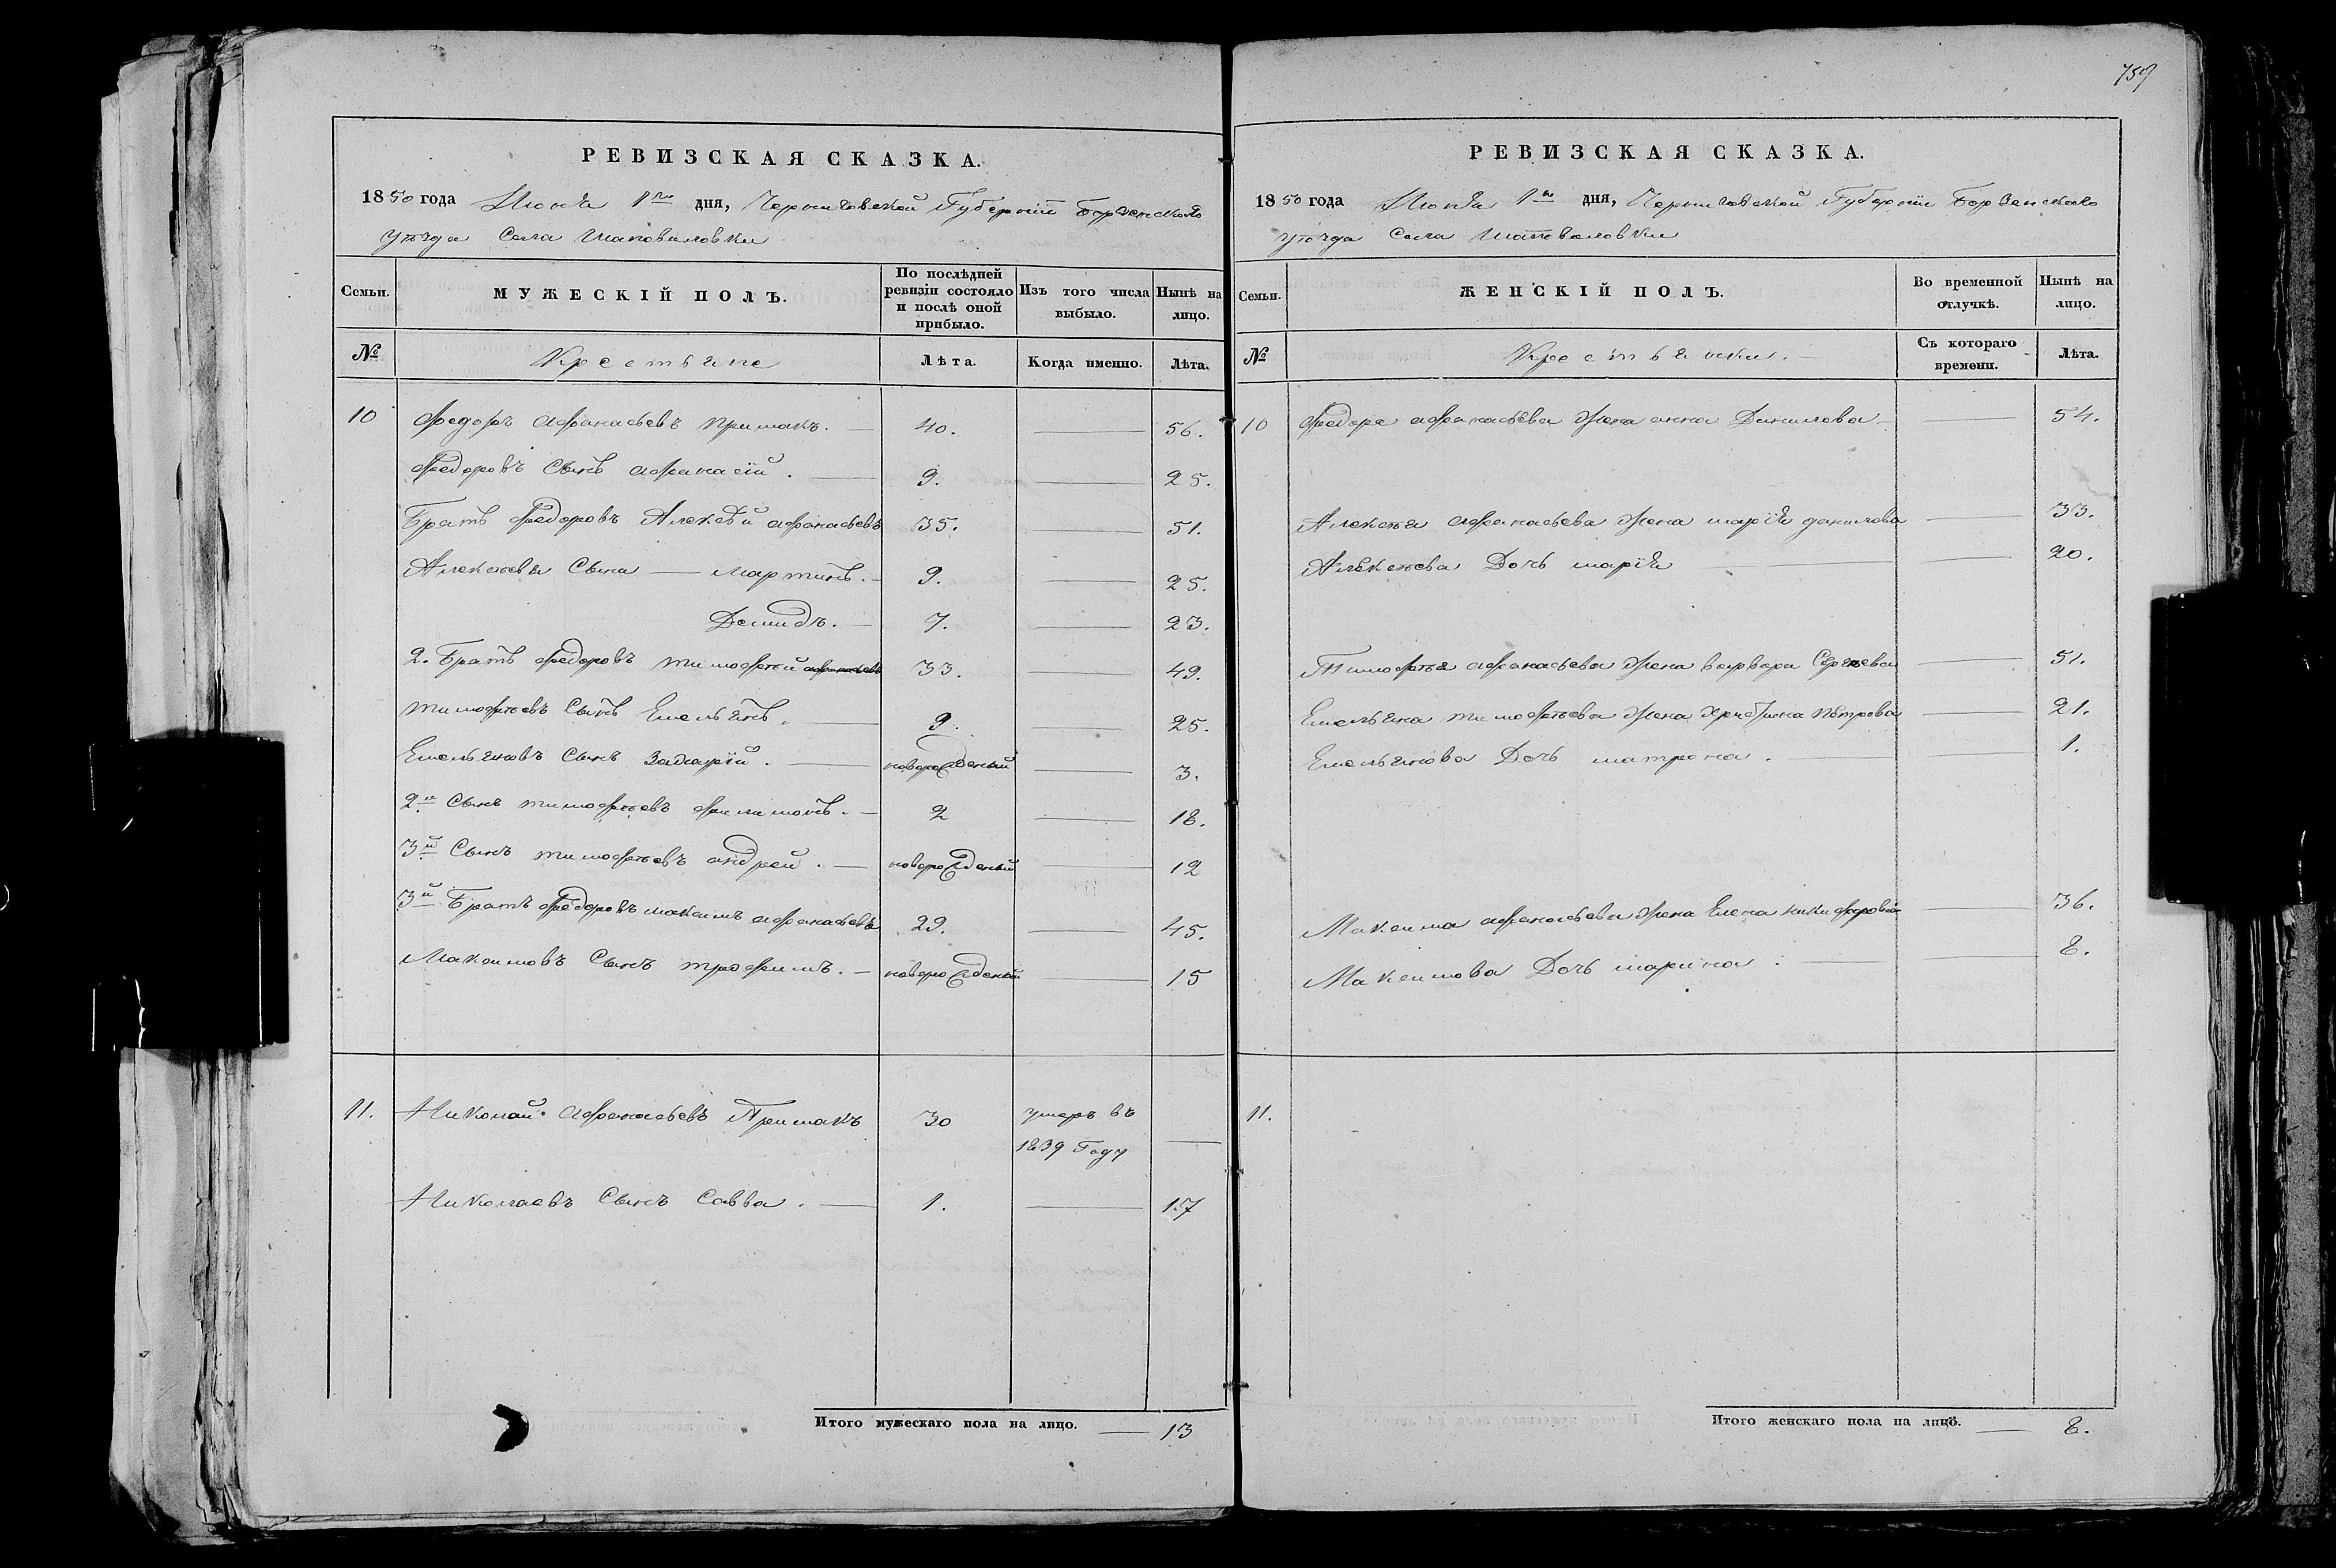 РЕВИЗСКАЯ СКАЗКА.
1850 года Июня 1го дня, Черниговской Губерніи Борзенскаго
уѣзда Села Шаповаловки
Семьи.
МУЖЕСКІЙ ПОЛЪ.
По послѣдней ревизіи состояло и послѣ оной прибыло.
Изъ того числа выбыло.
Нынѣ на лицо.
№
Крестьяне
Лѣта.
Когда именно.
Лѣта.
10 Федоръ Афанасьевъ Примакъ. — 40. — 56.
Федоровъ Сынъ Афанасій. — 9. — 25.
Братъ Федоровъ Алексѣй Афанасьевъ 35. — 51.
Алексѣевы Сына — мартинъ. — 9. — 25.
Демидъ. — 7. — 23.
2. Братъ Федоровъ тимофѣй афанасьевъ 33. — 49.
тимофѣевъ Сынъ Емельянъ. — 9. — 25.
Емельяновъ Сынъ Захарій. — новорожденый — 3.
2й Сынъ тимофѣевъ филимонъ. — 2 — 18.
3й Сынъ тимофѣевъ андрей. — новорожденый — 12
3й Братъ Федоровъ максимъ афанасьевъ 29. — 45.
Максимовъ Сынъ трофимъ. — новорожденый — 15
11. Николай Афанасьевъ Примакъ 30 умеръ въ —
1839 Году
Николаевъ Сынъ Савва. — 1. — 17
Итого мужескаго пола на лицо. — 13
759
РЕВИЗСКАЯ СКАЗКА.
1850 года Июня 1го дня, Черниговской Губерніи Борзенскаго
уѣзда Села Шаповаловки
Семьи.
ЖЕНСКІЙ ПОЛЪ.
Во временной отлучкѣ.
Нынѣ на лицо.
№
Крестьянки. —
Съ котораго времени.
Лѣта.
10 Федора афанасьева жена анна Данилова — 54.
Алексѣя афанасьева жена марія данилова — 33.
Алексѣева Дочь марія — 20.
Тимофѣя афанасьева жена варвара Сергѣева — 51.
Емельяна тимофѣева жена Христина Петрова — 21.
Емельянова Дочь матрона. — 1.
Максима афанасьева жена Елена никифорова — 36.
Максимова Дочь марина. — 8.
11.
Итого женскаго пола на лицо. — 8.